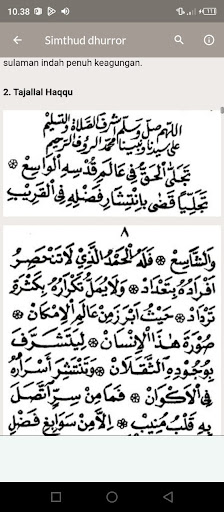 10.38
Simthud dhurror
sulaman indah penuh keagungan.
2. Tajallal Haqqu
اللهم صل وسلم أشرف الصلاة والتسليم
على سيدنا ونبينا محمد الرؤف الرحيم
تَجَلَّى الْحَقُّ فِي عَالَمِ قُدْسِهِ الْوَاسِعِ ❊
تَجَلِّيًا قَضَى بِانْتِشَارِ فَضْلِهِ فِي الْقَرِيْبِ
٨
وَالشَّاسِعِ ❊ فَلَهُ الْحَمْدُ الَّذِي لَا تَنْحَصِرُ
أَفْرَادُهُ بِتَعْدَادٍ ❊ وَلَا يُمَلُّ تَكْرَارُهُ بِكَثْرَةِ
تَرْدَادٍ ❊ حَيْثُ أَبْرَزَ مِنْ عَالَمِ الْإِمْكَانِ ❊
صُوْرَةَ هٰذَا الْإِنْسَانِ ❊ لِيَتَشَرَّفَ
بِوُجُوْدِهِ الثَّقَلَانِ ❊ وَتَنْتَشِرَ أَسْرَارُهُ
فِي الْأَكْوَانِ ❊ فَمَا مِنْ سِرٍّ اتَّصَلَ
بِهِ قَلْبُ مُنِيْبٍ ❊ إِلَّا مِنْ سَوَابِغِ فَضْلِ